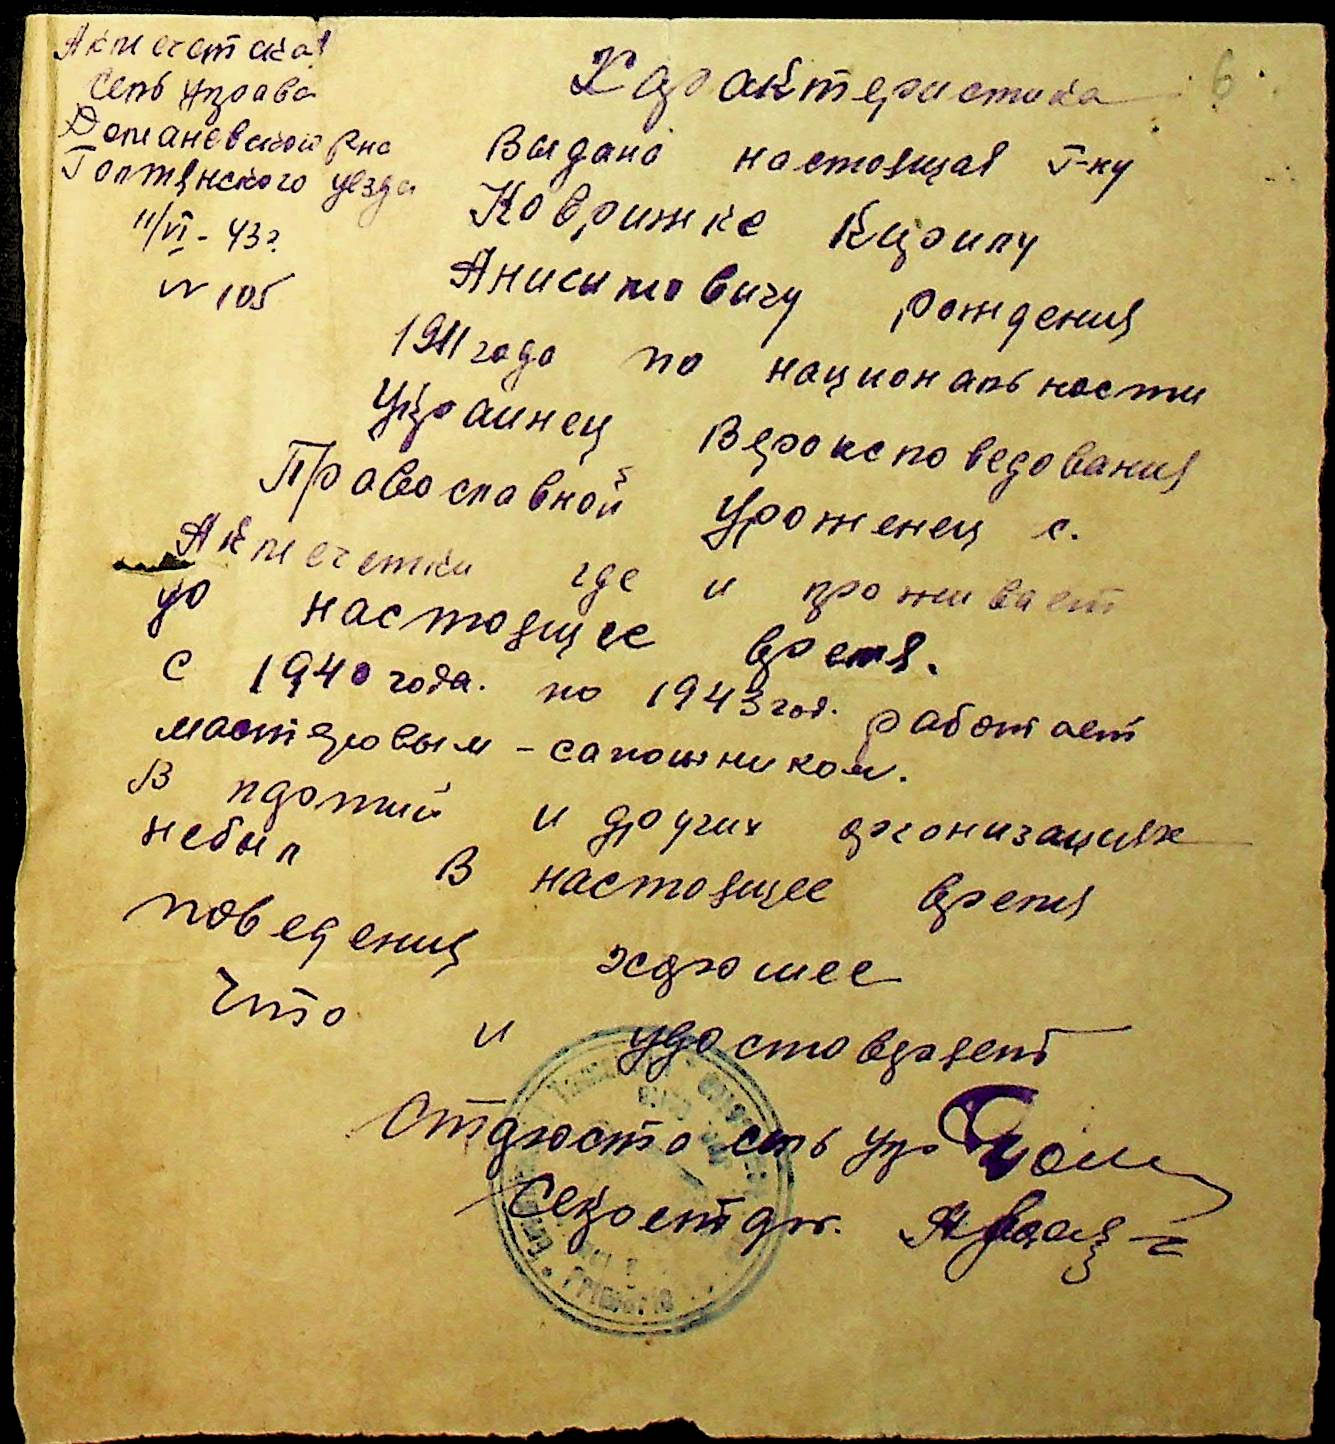 Акмечетская
Сель управа
Доманевской р-на
Голтянского уезда
11/VI - 43 г.
№ 105
6
Характеристика
Выдана настоящая г-ну
Коврижке Кирилу
Анисимовичу рождения
1911 года по национальности
Украинец Вероисповедования
Православной уроженец с.
Акмечетки где и проживает
до настоящее время.
С 1940 года. по 1943 год. работает
мастеровым - сапожником.
В партий и других организациях
небыл В настоящее время
поведения хорошее
Что и удостоверяет
Старосто сель упр
Секретарь.
Primaria